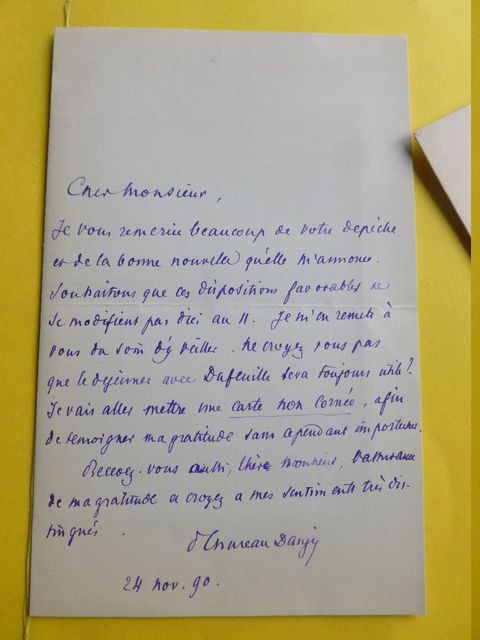 Cher Monsieur,
Je vous remercie beaucoup de votre depêche
et de la bonne nouvelle qu'elle m'annonce.
Souhaitons que ces dispositions favorables ne
se modifient pas d'ici au 11. Je m'en remets à
vous du soin d'y veiller. Ne croyez vous pas
que le dejeuner avec Dufeuille sera toujours utile?
Je vais aller mettre une carte non cornée, afin
de temoigner ma gratitude sans cependant importuner.
Recevez-vous aussi, cher Monsieur, l'assurance
de ma gratitude et croyez a mes sentiments très dis-
tingués.
24 nov. 90.